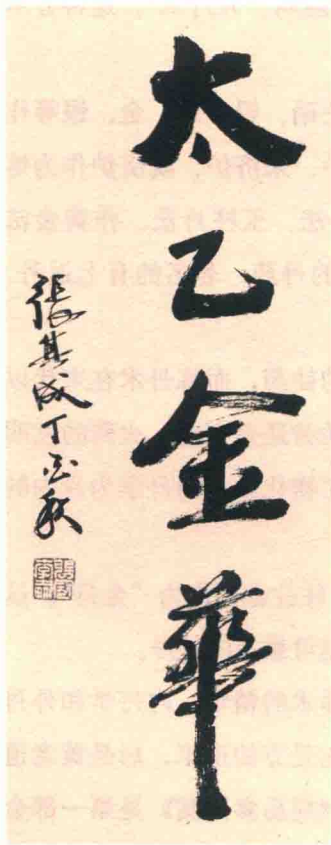 太乙金華
張其成丁亥秋